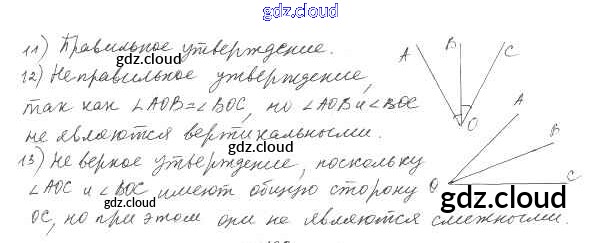 gdz.cloud
11) Правильное утверждение.
12) Неправильное утверждение,
так как ∠AOB=∠BOC, но ∠AOB и ∠BOC
не являются вертикальными.
13) Неверное утверждение, поскольку
∠AOC и ∠BOC имеют общую сторону
OC, но при этом они не являются смежными.
A B C
O
A
B
O C
gdz.cloud
gdz.cloud
gdz.cloud
gdz.cloud
gdz.cloud